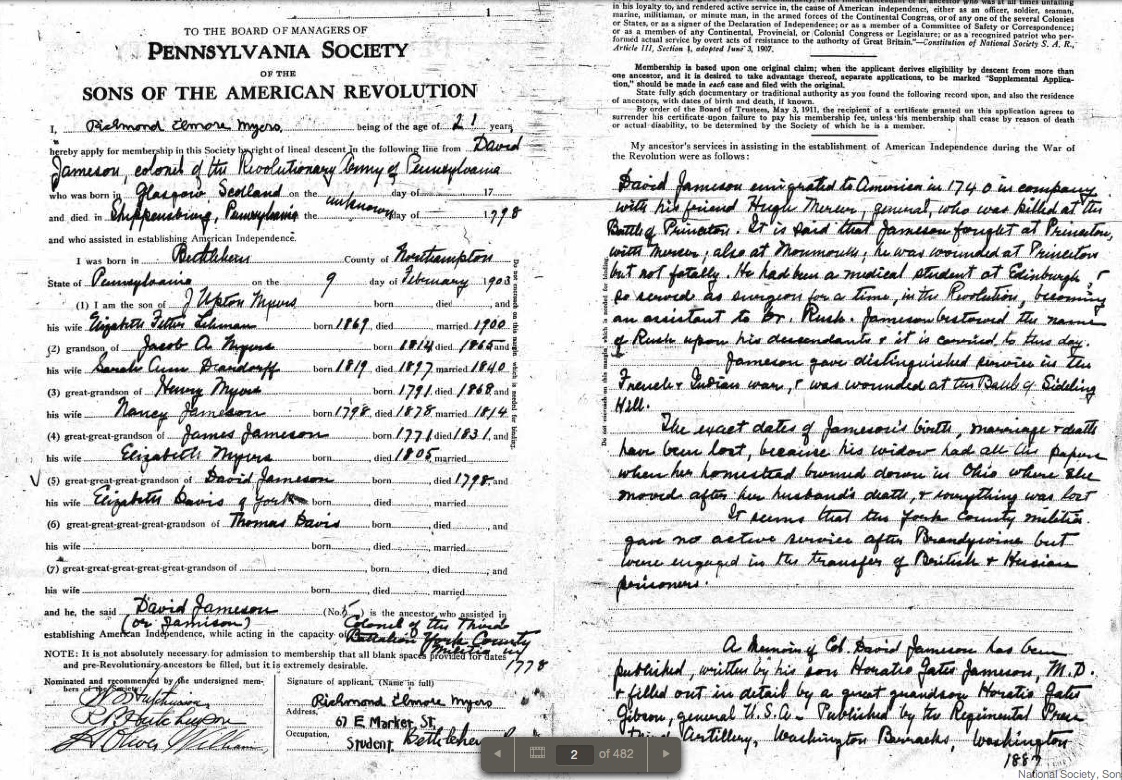 1
TO THE BOARD OF MANAGERS OF
PENNSYLVANIA SOCIETY
OF THE
SONS OF THE AMERICAN REVOLUTION
I, Richmond Elmore Myers, being of the age of 21 years,
hereby apply for membership in this Society by right of lineal descent in the following line from David
Jameson, colonel of the Revolutionary Army of Pennsylvania
who was born in Glasgow Scotland on the unknown day of 17
and died in Shippensburg, Pennsylvania the day of 1798
and who assisted in establishing American Independence.
I was born in Bethlehem County of Northampton
State of Pennsylvania on the 9 day of February 1903
(1) I am the son of J Upton Myers born died and
his wife Elizabeth Fetter Lehman born 1869 died married 1900
(2) grandson of Jacob A. Myers born 1814 died 1865 and
his wife Sarah Ann born 1819 died 1897 married 1840
(3) great-grandson of Henry Myers born 1791 died 1868, and
his wife Nancy Jameson born 1798 died 1878 married 1814
(4) great-great-grandson of James Jameson born 1771 died 1831, and
his wife Elizabeth Myers died 1805 married
(5) great-great-grandson of David Jameson born , died 1798 and
his wife Elizabeth Davis of York born , died , married
(6) great-great-great-great-grandson of Thomas Davis born , died , and
his wife born , died , married
(7) great-great-great-great-grandson of born , died , and
his wife born , died , married
and he, the said David Jameson (No. 5) is the ancestor who assisted in
(or Jamison) Colonel of the Third
establishing American Independence, while acting in the capacity of Battalion York County
Militia in
NOTE: It is not absolutely necessary for admission to membership that all blank spaces provided for dates 1778
and pre-Revolutionary ancestors be filled, but it is extremely desirable.
Nominated and recommended by the undersigned mem-
bers of the Society:
Signature of applicant. (Name in full)
Richmond Elmore Myers
Address, 67 E. Market, St,
Occupation, Student. Bethlehem
Do not encroach on this margin which is needed for binding.
in his loyalty to, and rendered active service in, the cause of American independence, either as an officer, soldier, seaman,
marine, militiaman, or minute man, in the armed forces of the Continental Congress, or of any one of the several Colonies
or States, or as a signer of the Declaration of Independence; or as a member of a Committee of Safety or Correspondence;
or as a member of any Continental, Provincial, or Colonial Congress or Legislature; or as a recognized patriot who per-
formed actual service by overt acts of resistance to the authority of Great Britain."—Constitution of National Society S. A. R.,
Article III, Section 1, adopted June 3, 1907.
Membership is based upon one original claim; when the applicant derives eligibility by descent from more than
one ancestor, and it is desired to take advantage thereof, separate applications, to be marked "Supplemental Applica-
tion," should be made in each case and filed with the original.
State fully such documentary or traditional authority as you found the following record upon, and also the residence
of ancestors, with dates of birth and death, if known.
By order of the Board of Trustees, May 3, 1911, the recipient of a certificate granted on this application agrees to
surrender his certificate upon failure to pay his membership fee, unless his membership shall cease by reason of death
or actual disability, to be determined by the Society of which he is a member.
My ancestor's services in assisting in the establishment of American Independence during the War of
the Revolution were as follows:
David Jameson emigrated to America in 1740 in company
with his friend Hugh Mercer, general, who was killed at the
Battle of Princeton. It is said that Jameson fought at Princeton,
with Mercer; also at Monmouth; he was wounded at Princeton
but not fatally. He had been a medical student at Edinburgh, &
so served as surgeon for a time, in the Revolution, becoming
an assistant to Dr. Rush. Jameson bestowed the name
of Rush upon his descendants & it is carried to this day.
Jameson gave distinguished service in the
French & Indian war, & was wounded at the Battle of Sideling
Hill.
The exact dates of Jameson's birth, marriage & death
have been lost, because his widow had all his papers
when her homestead burned down in Ohio where she
moved after her husband's death, & everything was lost
It seems that the York County militia
gave no active service after Brandywine but
were engaged in the transfer of British & Hessian
prisoners.
A Memoir of Col. David Jameson has been
published, written by his son Horatio Gates Jameson, M.D.
& filled out in detail by a great grandson Horatio Gates
Gibson, general U.S.A. - Published by the Regimental Press
Third Artillery, Washington Barracks, Washington
188
Do not encroach on this margin, which is needed for binding.
2 of 482
National Society, Son